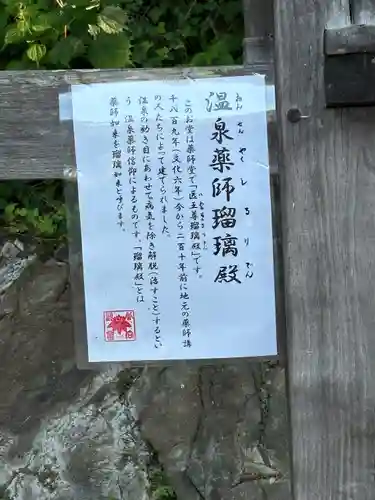 温泉薬師瑠璃殿
おんせんやくしるりでん
このお堂は薬師堂で「医王尊瑠璃殿」です。
千八百九年(文化六年)今から二百十年前に地元の薬師講
の人たちによって建てられました。
温泉の効き目にあわせて病気を除き解脱(治すこと)するとい
う温泉薬師信仰によるものです。「瑠璃殿」とは
薬師如来を瑠璃如来と呼びます。